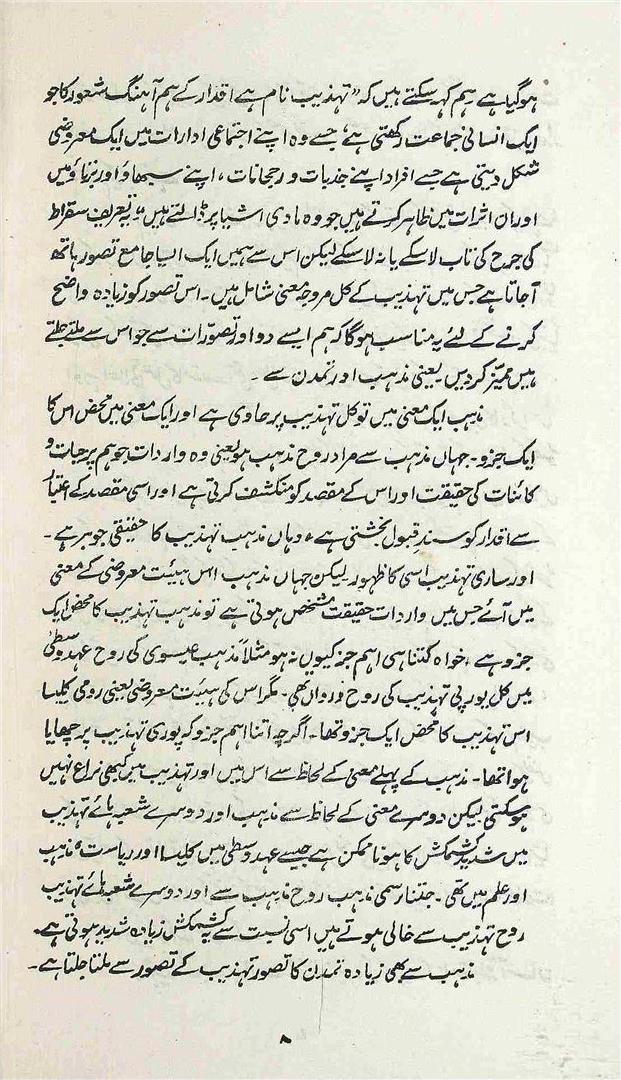 ہوگیا ہے ہم کہہ سکتے ہیں کہ "تہذیب نام ہے اقدار کے ہم آہنگ شعور کا جو
ایک انسانی جماعت رکھتی ہے، جسے وہ اپنے اجتماعی ادارات میں ایک معروضی
شکل دیتی ہے جسے افراد اپنے جذبات و رجحانات، اپنے سبھاؤ اور برتاؤ میں
اور ان اثرات میں ظاہر کرتے ہیں جو وہ مادی اشیا پر ڈالتے ہیں" یہ تعریف سقراط
کی جرح کی تاب لا سکے یا نہ لا سکے لیکن اس سے ہمیں ایک ایسا جامع تصور ہاتھ
آجاتا ہے جس میں تہذیب کے کل مروجہ معنی شامل ہیں۔ اس تصور کو زیادہ واضح
کرنے کے لئے یہ مناسب ہوگا کہ ہم ایسے دو اور تصورات سے جو اس سے ملتے جلتے
ہیں ممیّز کردیں یعنی مذہب اور تمدن سے۔
مذہب ایک معنی میں تو کل تہذیب پر حاوی ہے اور ایک معنی میں محض اس کا
ایک جزو۔ جہاں مذہب سے مراد روح مذہب ہو یعنی وہ واردات جو ہم پر حیات و
کائنات کی حقیقت اور اس کے مقصد کو منکشف کرتی ہے اور اسی مقصد کے اعتبار
سے اقدار کو سندِ قبول بخشتی ہے، وہاں مذہب تہذیب کا حقیقی جوہر ہے۔
اور ساری تہذیب اسی کا ظہور لیکن جہاں مذہب اس ہیئت معروضی کے معنی
میں آئے جس میں واردات حقیقت مشخص ہوتی ہے تو مذہب تہذیب کا محض ایک
جزو ہے، خواہ کتنا ہی اہم جز کیوں نہ ہو مثلاً مذہب عیسوی کی روح عہد وسطیٰ
میں کل یورپی تہذیب کی روح و رواں تھی۔ مگر اس کی ہیئت معروضی یعنی رومی کلیسا
اس تہذیب کا محض ایک جزو تھا۔ اگرچہ اتنا اہم جزو کہ پوری تہذیب پر چھایا
ہوا تھا۔ مذہب کے پہلے معنی کے لحاظ سے اس میں اور تہذیب میں کبھی نزاع نہیں
ہوسکتی لیکن دوسرے معنی کے لحاظ سے مذہب اور دوسرے شعبہ ہائے تہذیب
میں شدید کشمکش کا ہونا ممکن ہے جیسے عہد وسطی میں کلیسا اور ریاست، مذہب
اور علم میں تھی۔ جتنا رسمی مذہب روح مذہب سے اور دوسرے شعبہ ہائے تہذیب
روح تہذیب سے خالی ہوتے ہیں اسی نسبت سے یہ کشمکش زیادہ شدید ہوتی ہے۔
مذہب سے بھی زیادہ تمدن کا تصور تہذیب کے تصور سے ملتا جلتا ہے۔
۸